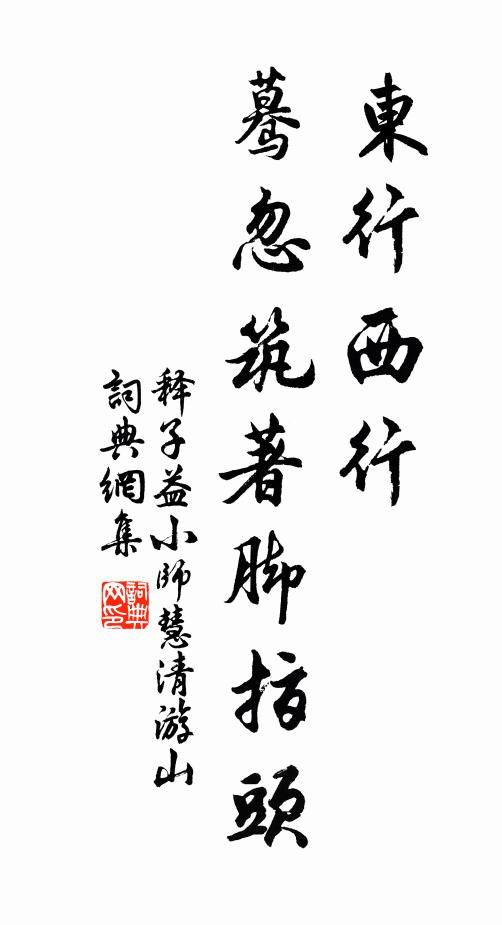 東行西行
驀忽筑著脚指頭
释子益小師慧清游山
詞典網集
詞典网印